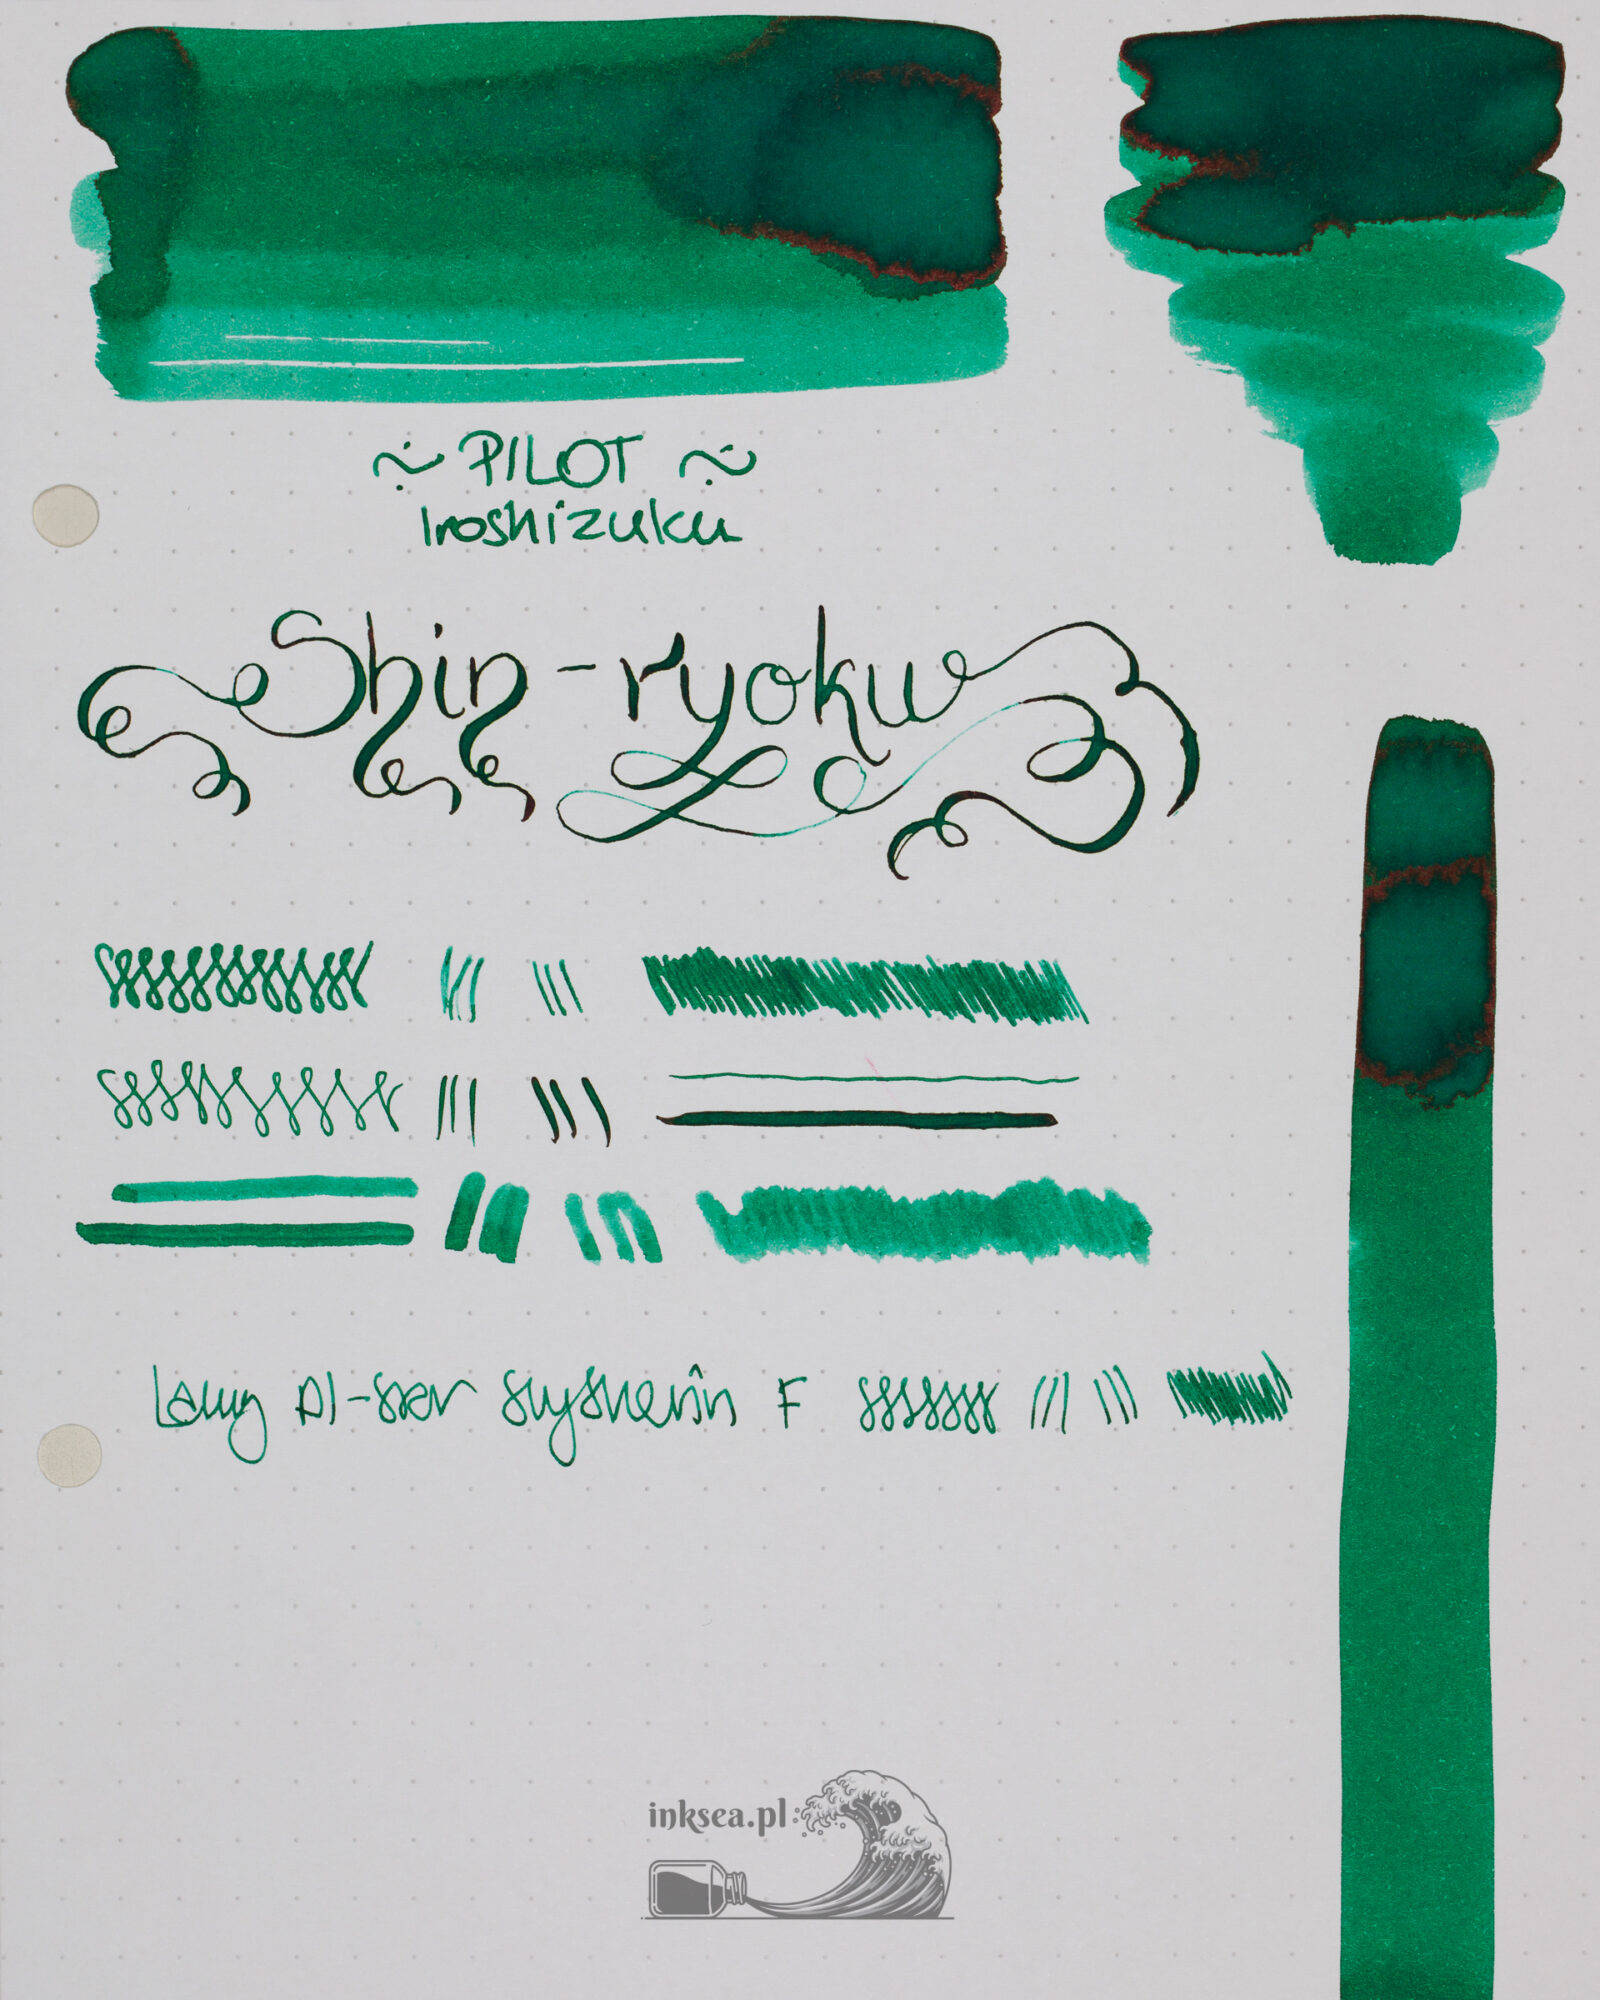 ~ PILOT ~
Iroshizuku
Shin-ryoku
Lamy Al-star slytherin F
inksea.pl